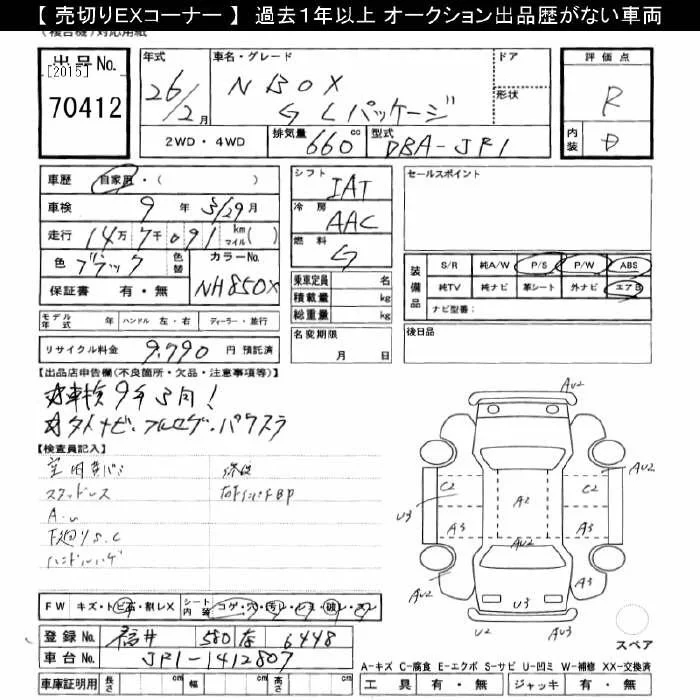 【 売切りEXコーナー 】 過去1年以上 オークション出品歴がない車両
(複合機)対応用紙
出品No.
[2015]
70412
年式
26/2月
車名・グレード
N BOX
G Lパッケージ
ドア
形状
評価点
R
内装
D
2WD・4WD
排気量 660 cc
型式 DBA-JF1
車歴 自家用・( )
車検 9 年 3/29 月
走行 14万 7千 091 km マイル( )
色 ブラック 色替
カラーNo. NH850X
保証書 有・無
シフト IAT
冷房 AAC
燃料 G
乗車定員 名
積載量 kg
総重量 kg
セールスポイント
装備品
S/R 純A/W P/S P/W ABS
純TV 純ナビ 革シート 外ナビ エアB
ナビ型番:
モデル年式 年 ハンドル 左・右 ディーラー・並行
名変期限 月 日
後日品
リサイクル料金 9,790 円 預託済
【出品店申告欄(不良箇所・欠品・注意事項等)】
車検9年3月!
ナビ・フルセグ・パワスラ
【検査員記入】
スタッドレス
下廻りS.C
ハンドルハゲ
AU2
AU2
C2
U3
A3
A2
AU2
C2
A3
A3
U3
U2
AU3
スペア
FW キズ・トビ石・割レX
シート内装 コゲ・穴・汚レ・シミ・破レ・スレ
登録No. 福井 580 存 6448
車台No. JF1-1412807
A-キズ C-腐食 E-エクボ S-サビ U-凹ミ W-補修 XX-交換済
車庫証明用 長さ cm 幅 cm 高さ cm
工具 有・無 ジャッキ 有・無